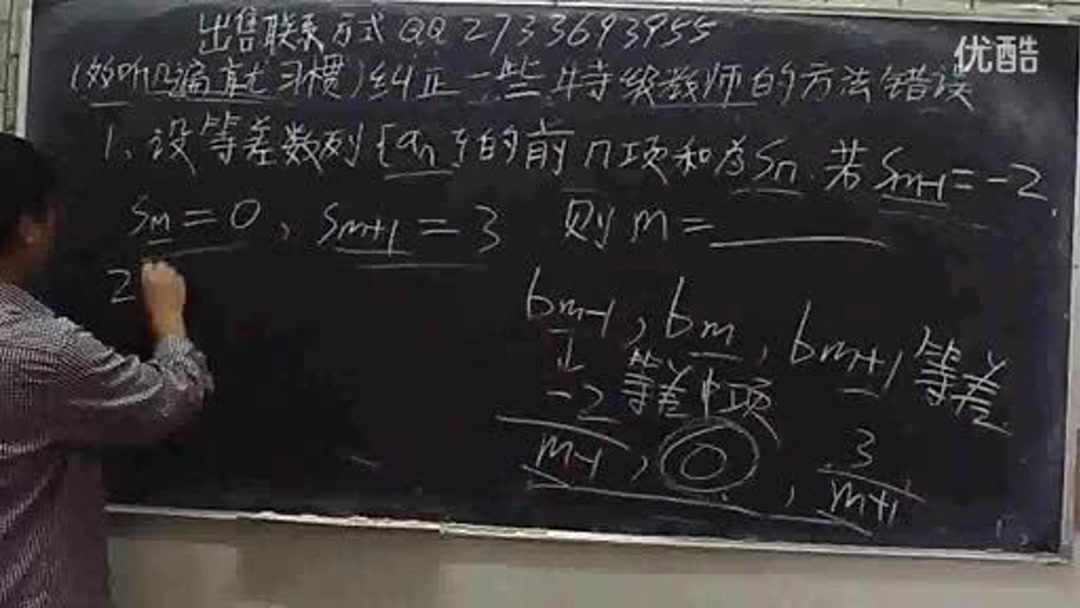 出售联系方式 QQ 2733693955
优酷
(多听几遍就习惯)纠正一些特级教师的方法错误
1、设等差数列{an}的前n项和为Sn.若Sm-1=-2,
Sm=0, Sm+1=3 则m=
2
bm-1, bm, bm+1等差
等差中项
-2/m-1, 0, 3/m+1